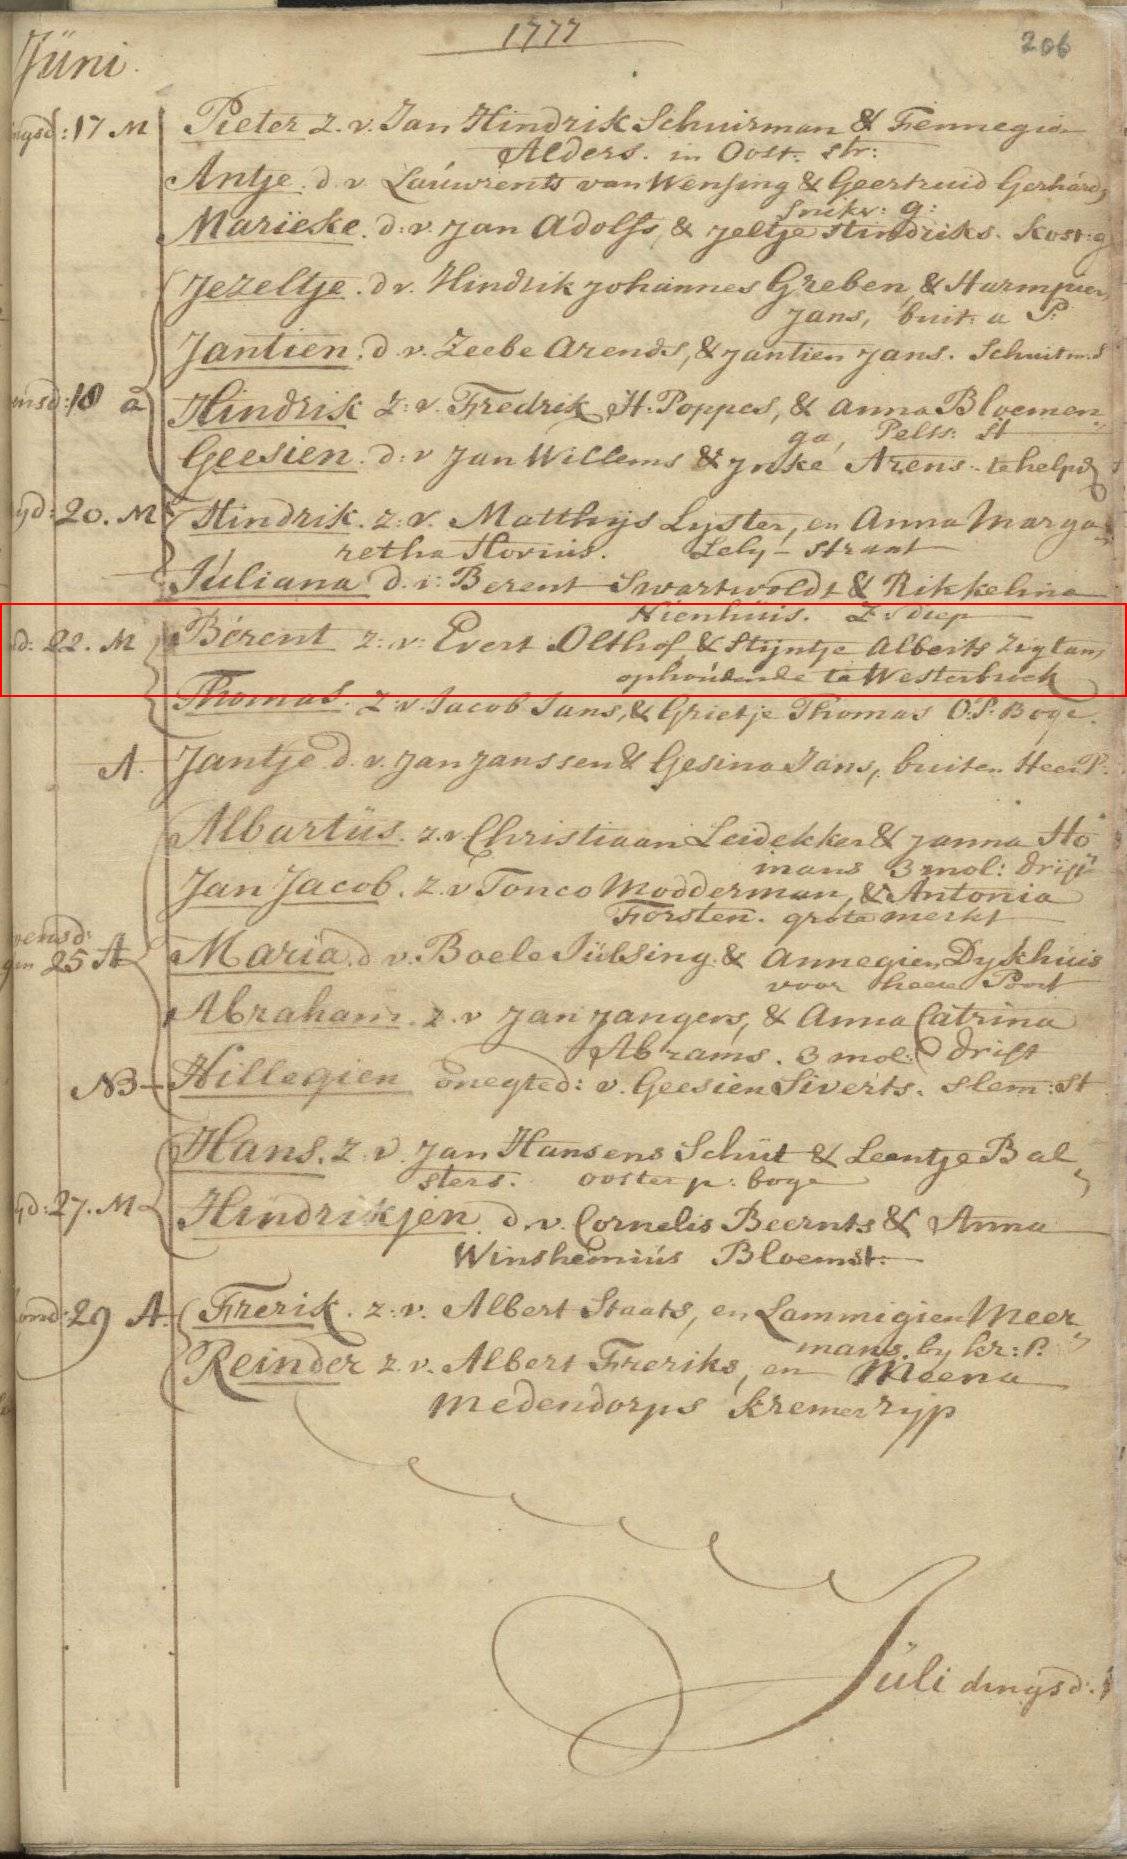 1777
206
Jüni.
ngsd: 17 M Pieter z. v. Jan Hindrik Schuirman & Fennegien
Alders. in Oost. str:
Antje. d. v. Laúwrents van Wensing & Geertruid Gerhárds
Snikv: g:
Marieke. d: v. Jan Adolfs, & Jeltje Hindriks. Kost: g
Jezeltje. d v. Hindrik Johannes Greben, & Harmpien
Jans, buit. a P:
Jantien. d v. Zeebe Arends, & Jantien Jans. Schuitm: s
ensd: 18 a Hindrik z: v. Fredrik H. Poppes, & Anna Bloemen
ga, Pelts: st
Geesien. d: v Jan Willems & Jnke Arens. te helpd
yd: 20. M Hindrik. z: v. Matthijs Lyster, en Anna Marga
retha Hovius. Lely - straat
Júliana d. v: Berent Swartwoldt & Rikkelina
Nienhúis. Z: diep
nd: 22. M Bérent z: v: Evert Olthof, & Stijntje Alberts Zigtam,
ophoúdende te Westerbrück
Thomas. z: v. Jacob Jans, & Grietje Thomas O: P. Boge.
A. Jantje d. v. Jan Janssen & Gesina Jans, buiten Heer P.
Albartüs. z. v Christiaan Leidekker & Janna Ho
mans 3 mol: drift
Jan Jacob. z. v Tonco Modderman, & Antonia
Forsten. grote merkt
oensd:
gen 25 A Maria. d v. Boele Júlsing & Annegien Dykhúis
voor heere Poort
Abraham. z. v Jan Jangers, & Anna Catrina
Abrams. 3 mol: drift
NB - Hillegien onegted: v. Geesien Siverts. slem: st
Hans. z. v. Jan Hansens Schüt & Leentje Bal
sters. ooster p: boge
yd: 27. M Hindrikjen d. v. Cornelis Beernts & Anna
Winshemiús Bloemst:
ond: 29 A. Frerik. z: v. Albert Staats, en Lammigien Meer
mans, by kr: P.
Reinder z v. Albert Freriks, en Meena
Medendorps kremer rijp
Júli dingsd: